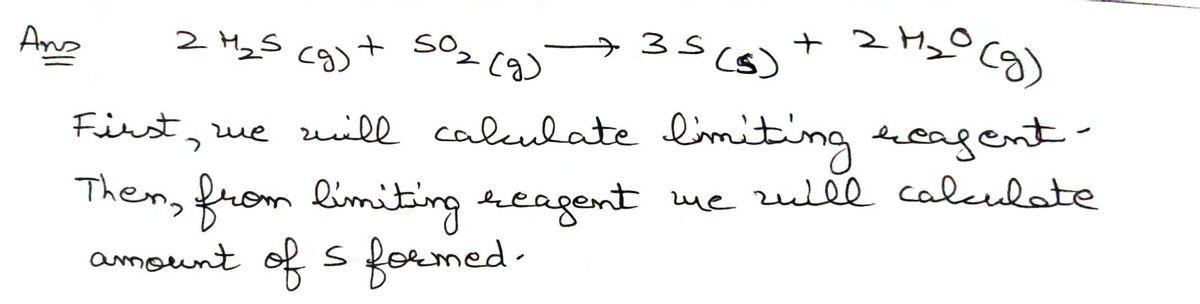 Ans 2 H₂S (g) + SO₂ (g) → 3 S (s) + 2 H₂O (g)
First, we will calculate limiting reagent.
Then, from limiting reagent we will calculate
amount of S formed.